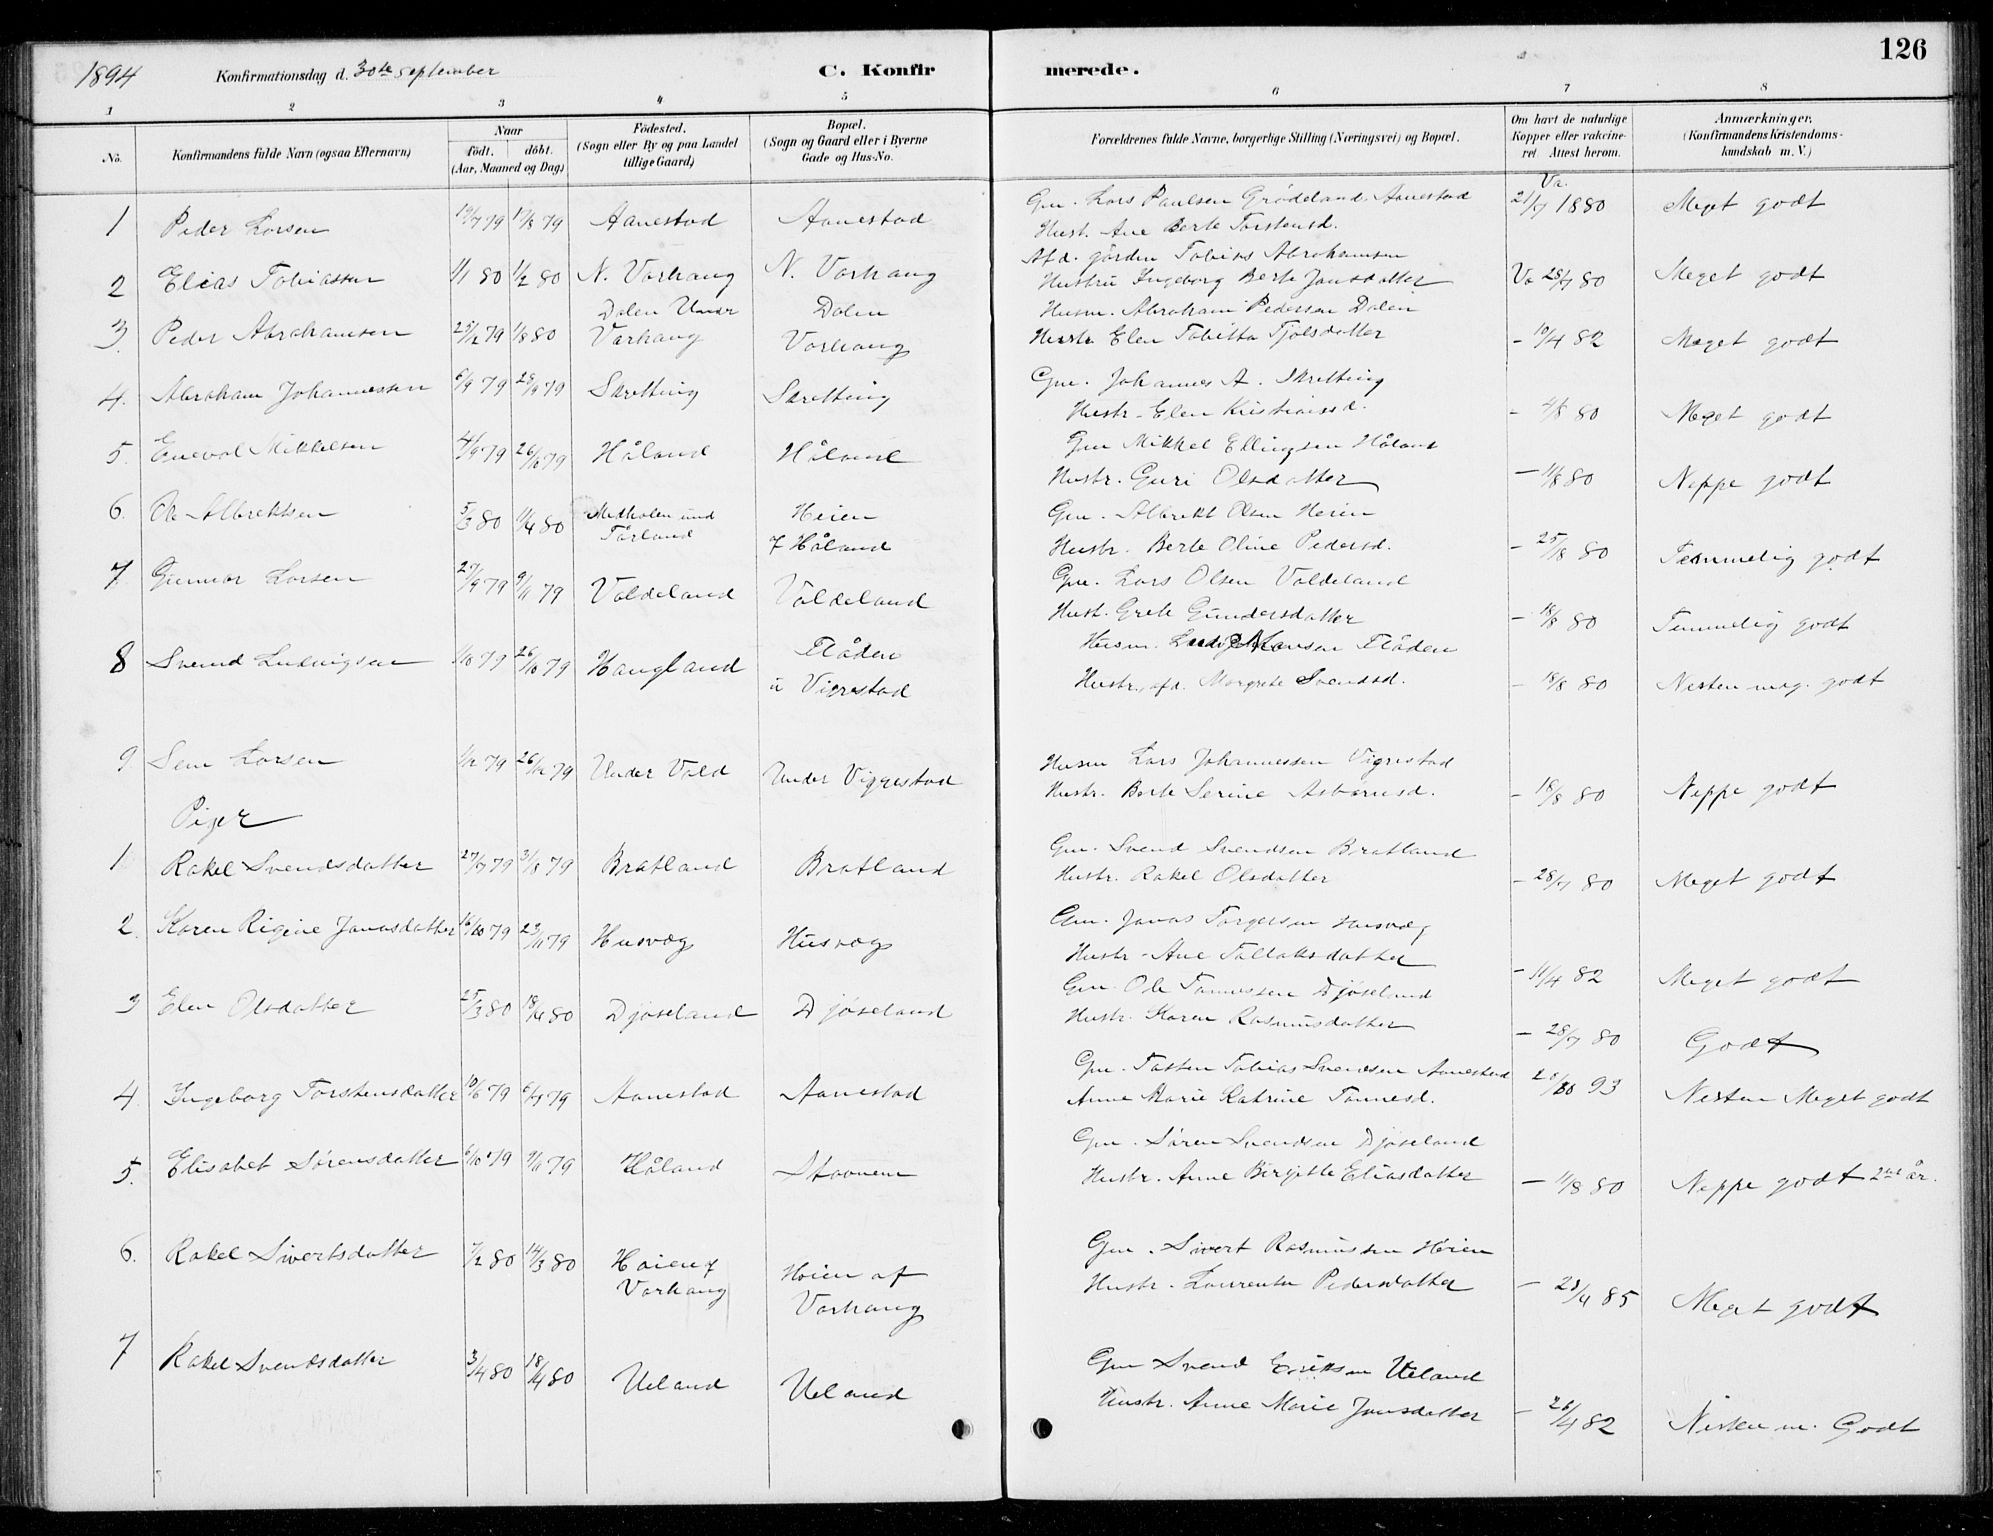 126
1894 Konfirmationsdag d. 30te September C. Konfirmerede.
1 2 3 4 5 6 7 8
No. Konfirmandens fulde Navn (ogsaa Efternavn) Naar födt. döbt. (Aar, Maaned og Dag) Födested. (Sogn eller By og paa Landet tillige Gaard) Bopæl. (Sogn og Gaard eller i Byerne Gade og Hus-No. Forældrenes fulde Navne, borgerlige Stilling (Næringsvei) og Bopæl. Om havt de naturlige Kopper eller vakcineret. Attest herom. Anmærkninger. (Konfirmandens Kristendomskundskab m. V.)
1 Peder Larsen 19/7 79 17/8 79 Aanestad Aanestad Gm. Lars Paulsen Grödeland Aanestad Va. 21/7 1880 Meget godt
Hust. Ane Berte Torstensd.
2 Elias Tobiassen 1/1 80 1/2 80 N. Varhaug N. Varhaug Afd. gården Tobias Abrahamsen
Hustru Ingeborg Berte Jonsdatter Va 28/7 80 Meget godt
3. Peder Abrahamsen 25/12 79 1/8 80 Dalen Under Varhaug Dalen Varhaug Husm. Abraham Pedersen Dalen
Hustr. Elen Tobitta Tjølsdatter - 10/4 82 Meget godt
4. Abraham Johannessen 6/9 79 28/9 79 Skretting Skretting Gm. Johannes A. Skretting
Hustr. Elen Kristiansd. - 4/8 80 Meget godt
5. Enevol Mikkelsen 4/9 79 26/10 79 Håland Håland Gm Mikkel Ellingsen Håland
Hustr. Guri Olsdatter - 11/8 80 Neppe godt
6. Ole Albrektsen 5/3 80 11/4 80 Medhølen und Tårland Heien f Håland Gm. Albrekt Olsen Heien
Hustr. Berte Oline Pedersd. - 25/8 80 Temmelig godt
7. Gunnar Larsen 27/9 79 9/11 79 Valdeland Valdeland Gm. Lars Olsen Valdeland
Hust. Grete Gundersdatter - 18/8 80 Temmelig godt
8 Svend Ludvigsen 1/10 79 26/10 79 Haugland Flåden u Vigrestad Husm. Ludvig Hansen Flåden
Hustr., afd. Margrete Svendsd. - 18/8 80 Nesten meg. godt
9 Sem Larsen 1/12 79 26/12 79 Under Vold Under Viggrestad Husm Lars Johannessen Vigrestad
Hustr. Berte Serine Asbørnsd. - 18/8 80 Neppe godt
Piger
1 Rakel Svendsdatter 27/7 79 31/8 79 Bratland Bratland Gm. Svend Svendsen Bratland
Hustr. Rakel Olsdatter - 28/7 80 Meget godt
2. Karen Rigine Jonasdatter 16/10 79 23/11 79 Husvæg Husvæg Gm. Jonas Torgersen Husvæg
Hustr. Ane Tallaksdatter - 11/4 82 Meget godt
3 Elen Olsdatter 25/3 80 18/4 80 Djøseland Djøseland Gm. Ole Tønnessen Djøseland
Hustr. Karen Rasmusdatter - 28/7 80 Godt
4. Ingeborg Torstensdatter 10/6 79 6/7 79 Aanestad Aanestad Gm. Tosten Tobias Svendsen Aanestad
Anne Marie Katrine Tønnesd. 93 Nesten Meget godt
5. Elisabet Sørensdatter 6/10 79 9/11 79 Håland Stavnem Gm. Søren Svendsen Djøseland
Hustr. Anne Birgitte Eliasdatter - 11/8 80 Neppe godt 2det år.
6. Rakel Sivertsdatter 7/2 80 14/3 80 Høien f Varhaug Høien af Varhaug Gm. Sivert Rasmussen Høien
Hustr. Laurentse Pedersdatter - 23/4 85 Meget godt
7 Rakel Svendsdatter 3/4 80 18/4 80 Ueland Ueland Gm Svend Eriksen Ueland
Hustr. Anne Marie Jonsdatter - 26/4 82 Nesten m. Godt